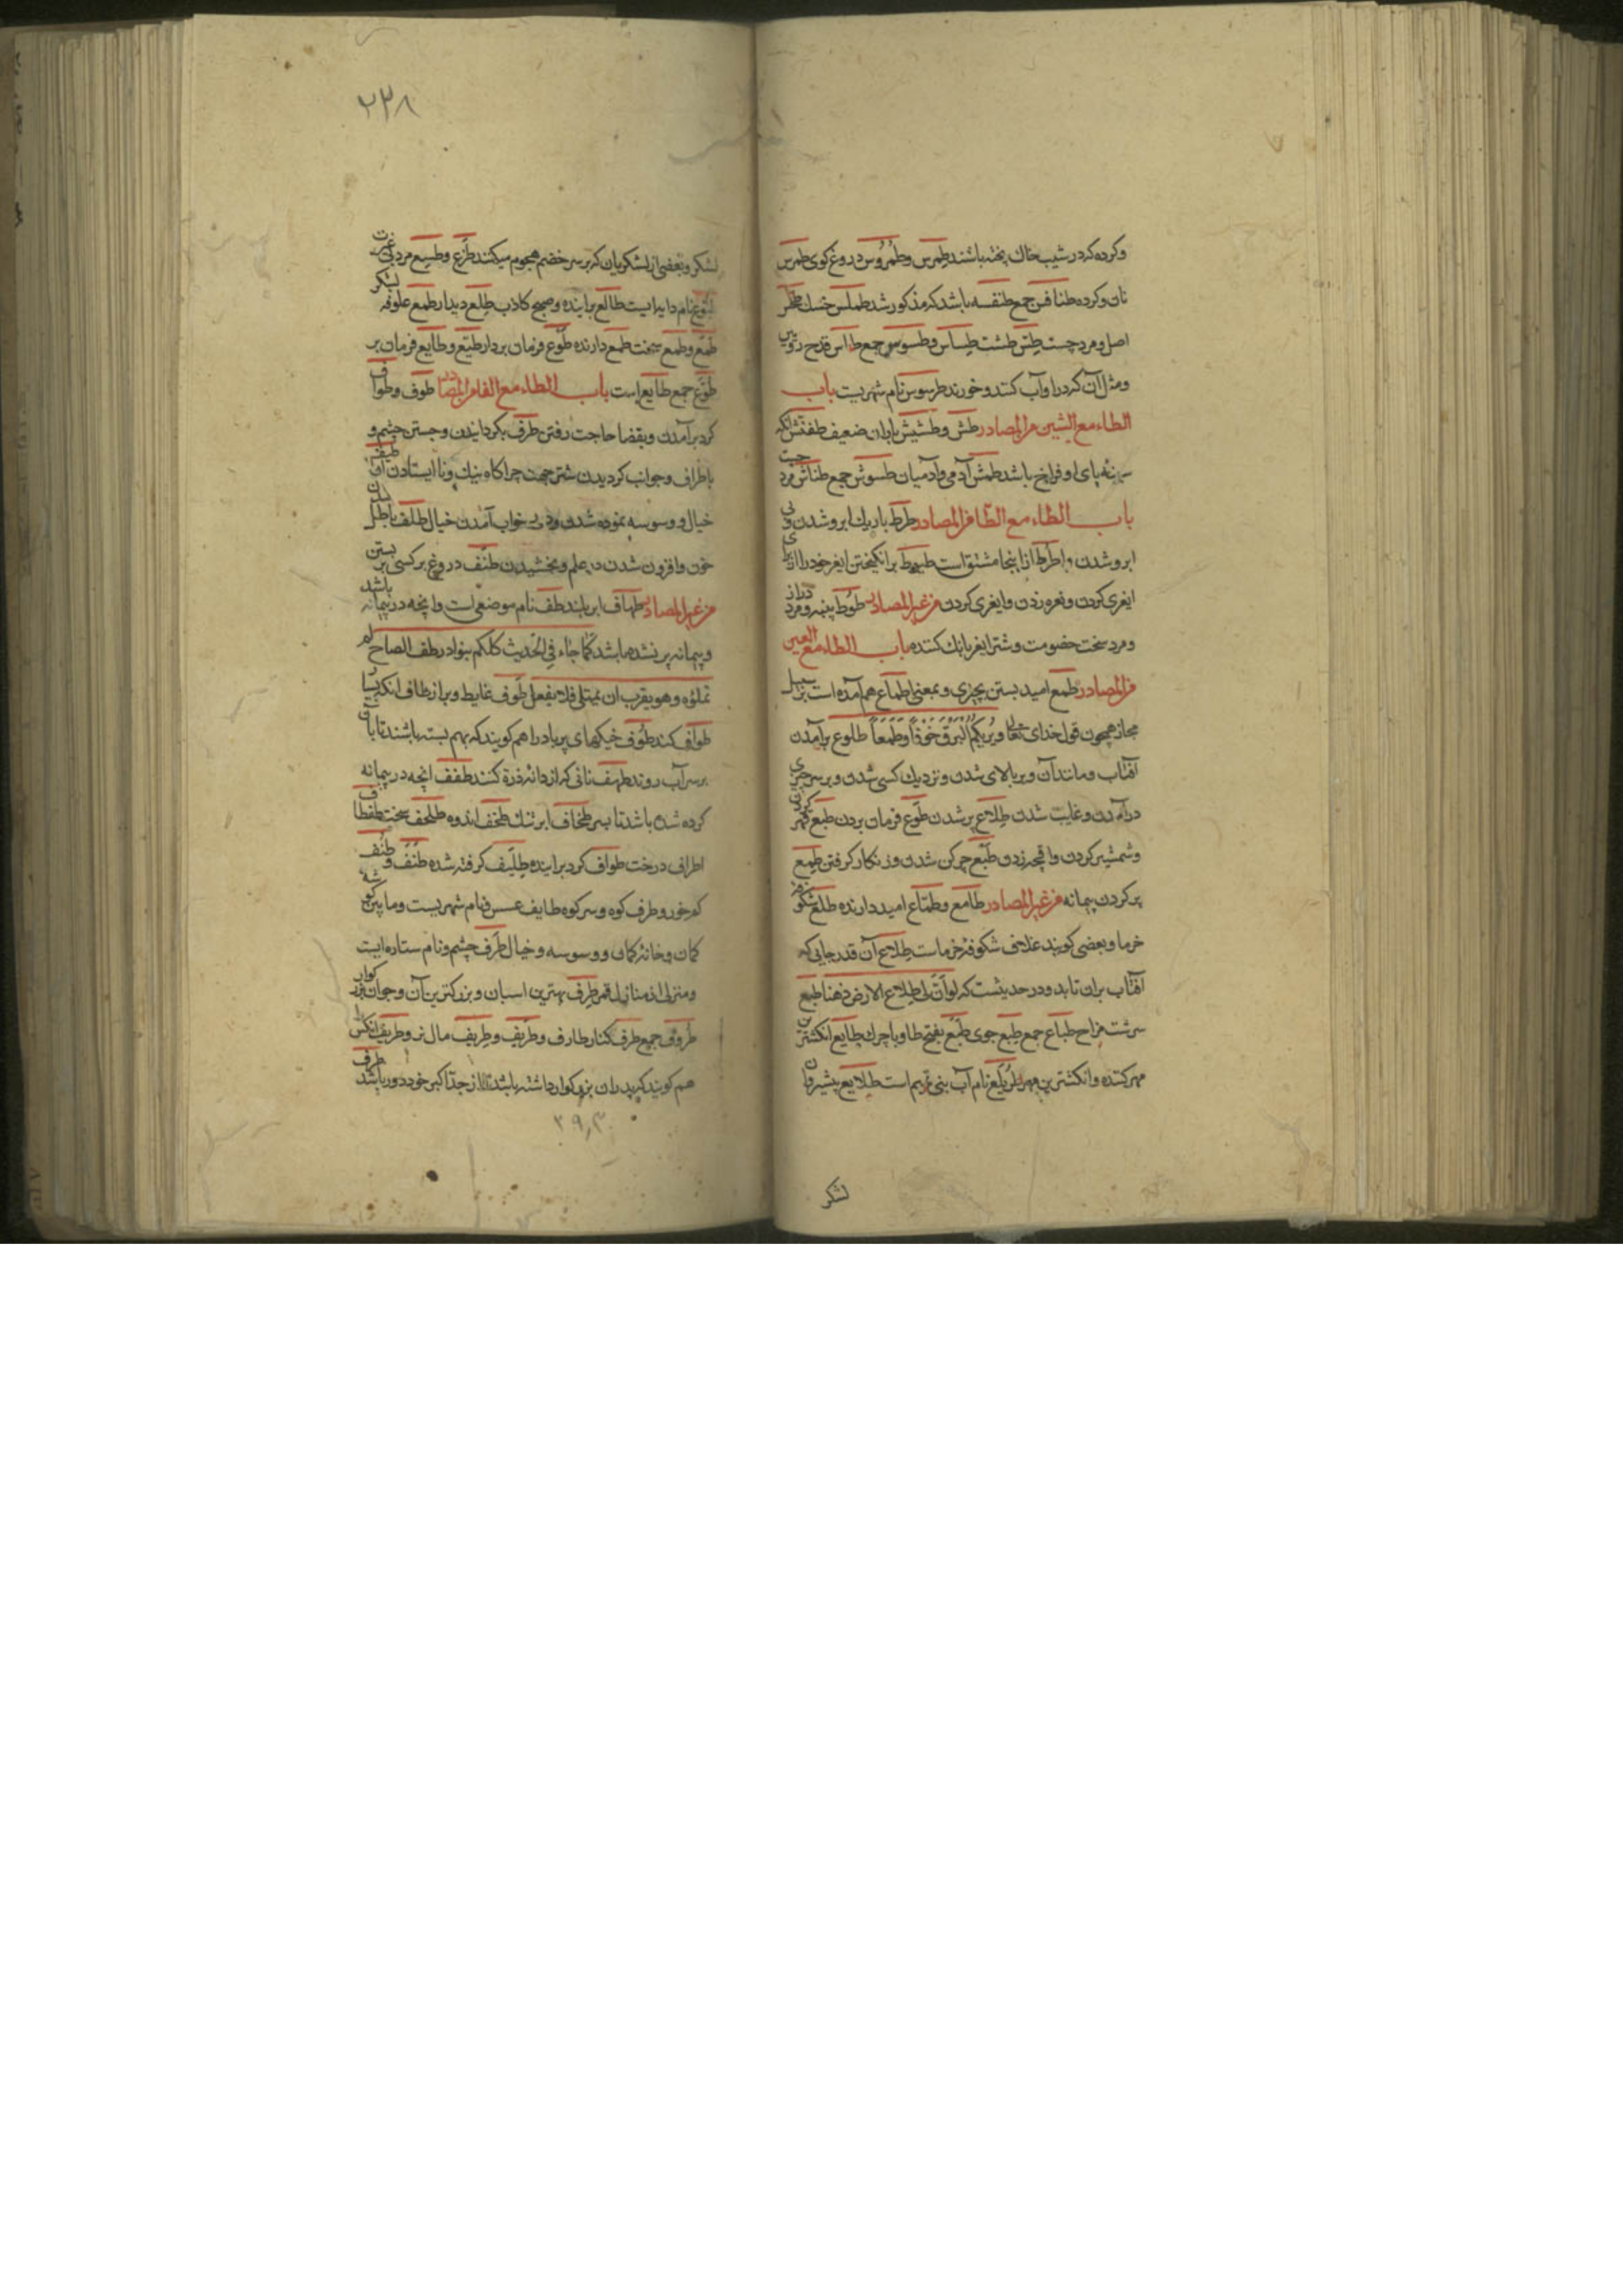 وکرده که در شیب خاك پخته باشند طِمرِس وطُمرُوس دروغ کوی طمرس
نان وکرده طنافس جمع طنفسه باشد که مذکور شد طملس خسك
اصل ومرد چست طِسّ طشت طِساس وطسوس جمع طاس قدح رویین
ومثل آن که درا وآب کنند وخورند طرسوس نام شهریست باب
الطاء مع الشین من المصادر طش وطشیش باران ضعیف طفنش آنکه
سینهٔ پای او فراخ باشد طمش آدمی وآدمیان طسوش جمع مرد
باب الطاء مع الطا من المصادر طرط باریك ابرو شدن وبی
ابرو شدن واطرط از اینجا مشتق است طیوط برانکیختن ایغر خود را از برای
ایغری کردن ونعره زدن وایغری کردن من غیر المصادر طوط پنبه ومرد دراز
ومرد سخت خصومت وشتر ایغر بانك کننده باب الطاء مع العین
من المصادر طمع امید بستن بچیزی وبمعنی اطماع هم آمده است بر سبیل
مجاز همچون قول خدای تعالی ویُرِیکُمُ البَرْقَ خَوْفاً وَطَمَعاً طلوع برآمدن
آفتاب ومانند آن وبر بالای شدن ونزدیك کسی شدن وبر سر چیزی
درآمدن وغایب شدن طِلاع پر شدن طَوع فرمان بردن طبع مهر کردن
وشمشیر کردن واقچه زدن طَبَع چرکن شدن وزنکار کرفتن طِمع
پر کردن پیمانه من غیر المصادر طامع وطمّاع امید دارنده طلع شکوفهٔ
خرما وبعضی کویند غلاف شکوفهٔ خرماست طِلاع آن قدر جایی که
آفتاب بران تابد ودر حدیثست که لو أنّ لی طِلاع الارض ذهبا طبع
سرشت مزاج طباع جمع طِبع جوی طَبَع بفتح طا وبا چرك طابع انکشترین
مهر کننده وانکشترین مهر نام آب بنی تمیم است طلایع پیشروان
لشکر
۲۳۸
لشکر وبعضی از لشکریان که بر سر خصم هجوم میکنند طَزِع وطسیع مرد بی غیرت
نام دایه ایست طالع براینده وصبح کاذب طِلع دیدار طمع علوفه لشکر
طَمِع وطَمُع سخت طمع دارنده طَوع فرمان بردار طیّع وطایع فرمان بر
طُوّع جمع طایع است باب الطاء مع الفا من المصادر طوف وطواف
کرد برآمدن وبقضا حاجت رفتن طرف بکردانیدن وجستن چشم و
باطراف وجوانب کردیدن شتر جهت چراکاه نیك ونا ایستادن آن طیف
خیال ووسوسه نموده شدن ودر خواب آمدن خیال طلف باطل شدن
خون وافزون شدن در علم وبخشیدن طنف دروغ بر کسی بر بستن
من غیر المصادر طهاف ابر بلند طف نام موضعی است وانچه در پیمانه باشد
وپیمانه پر نشده باشد کما جاء فی الحدیث کلکم بنو ادم طف الصاع لم
تملؤه وهو یقرب ان یمتلی فلا یفعل طوف غایط وبراز طاف آنکه بسیار
طواف کند طَوف خیکهای پر باد را هم کویند که بهم بسته باشند تا بآن
بر سر آب روند طهف نانی که از دانهٔ ذرة کنند طفف آنچه در پیمانه
کرده شده باشد تا بسر طخاف ابر تنك طخف اندوه طلحف سخت طفطاف
اطراف درخت طواف کرد براینده طِلّیف کرفته شده طَنَف و طُنُف
کم خور وطرف کوه وسر کوه طایف عسس ونام شهریست وما بین کوشه
کمان وخانهٔ کمان ووسوسه وخیال طَرف چشم ونام ستاره ایست
ومنزلی از منازل قمر طِرف بهترین اسبان وبزرکترین آن وجوان بزرکوار
طُرُوف جمع طرف کنار طارف وطَریف وطِریف مال نو وطریف آنکس را
هم کویند که پدران بزرکوار داشته باشد تا از جدّ اکبر خود دور باشد طرف